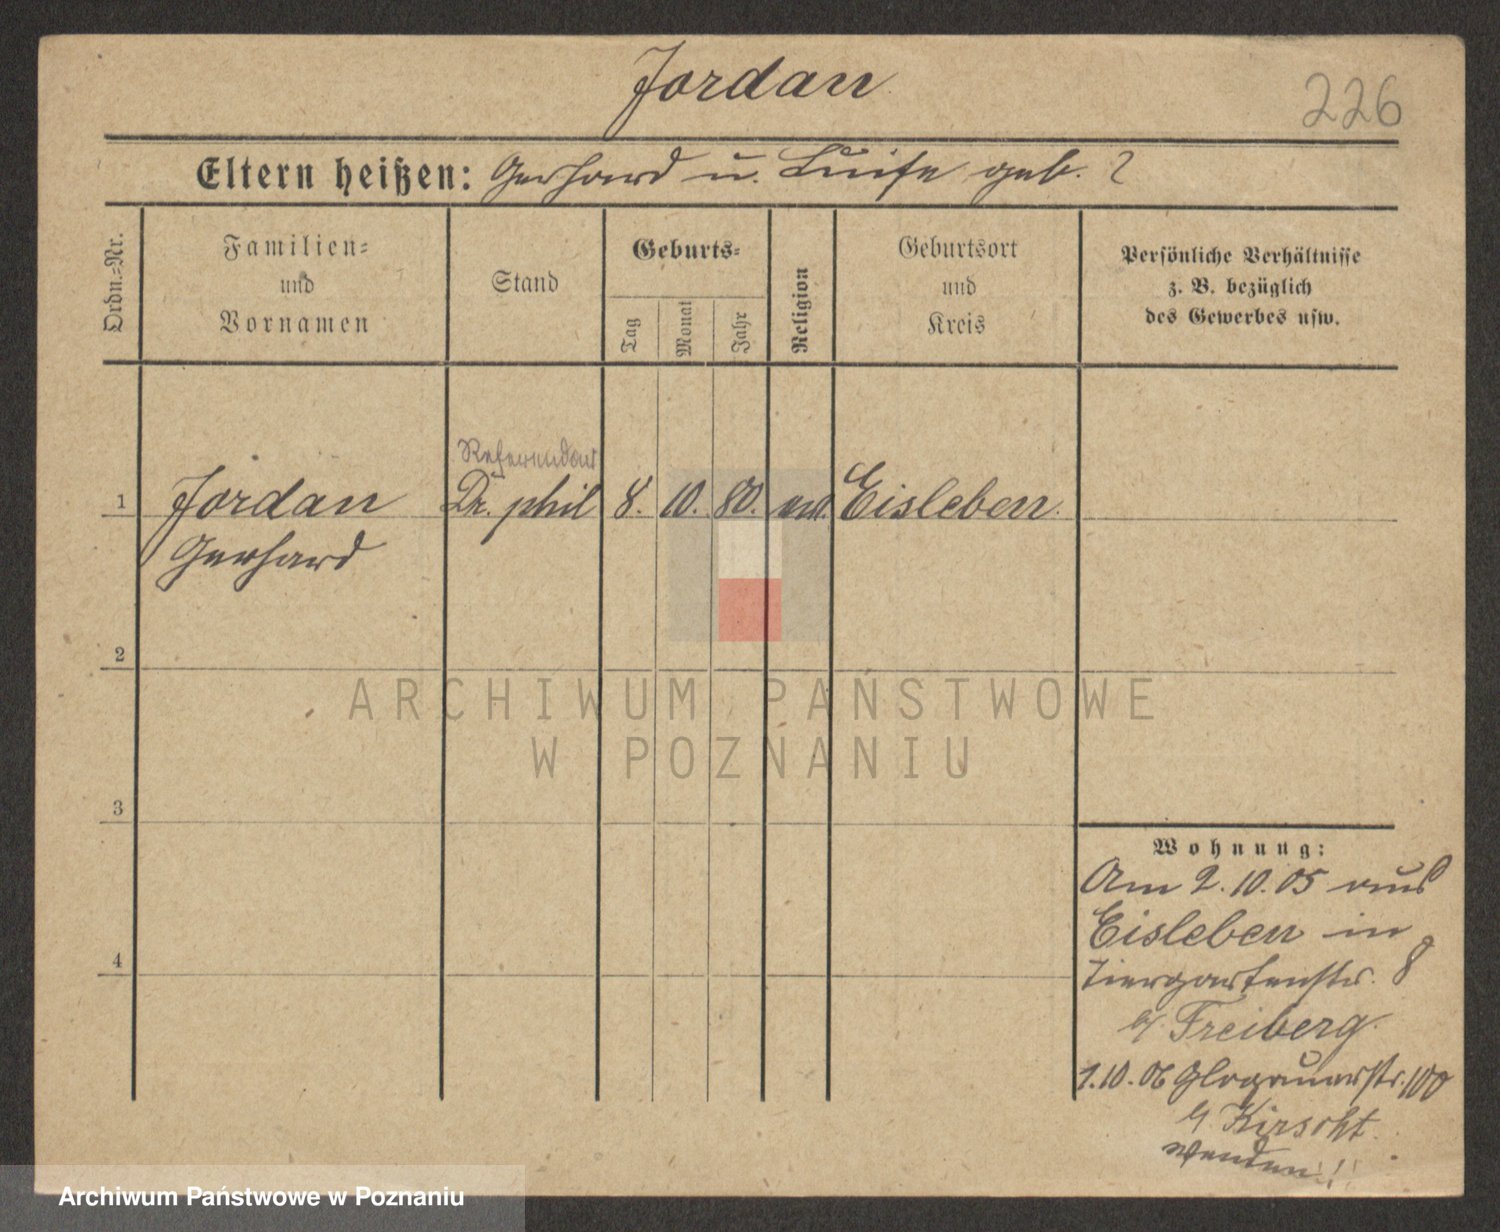 Jordan
226
Eltern heißen: Gerhard u. Luise geb. ?
Ordn.=Nr.
Familien=
und
Vornamen
Stand
Geburts=
Tag
Monat
Jahr
Religion
Geburtsort
und
Kreis
Persönliche Verhältnisse
z. B. bezüglich
des Gewerbes usw.
Referendar
1 Jordan Dr. phil 8. 10. 80. ev. Eisleben.
Gerhard
2
3
4
Wohnung:
Am 2.10.05 aus
Eisleben in
Tiergartenstr. 8
b/ Freiberg.
1.10.06 Glogauerstr. 100
b/ Kirscht.
wenden!!
ARCHIWUM PAŃSTWOWE
W POZNANIU
Archiwum Państwowe w Poznaniu